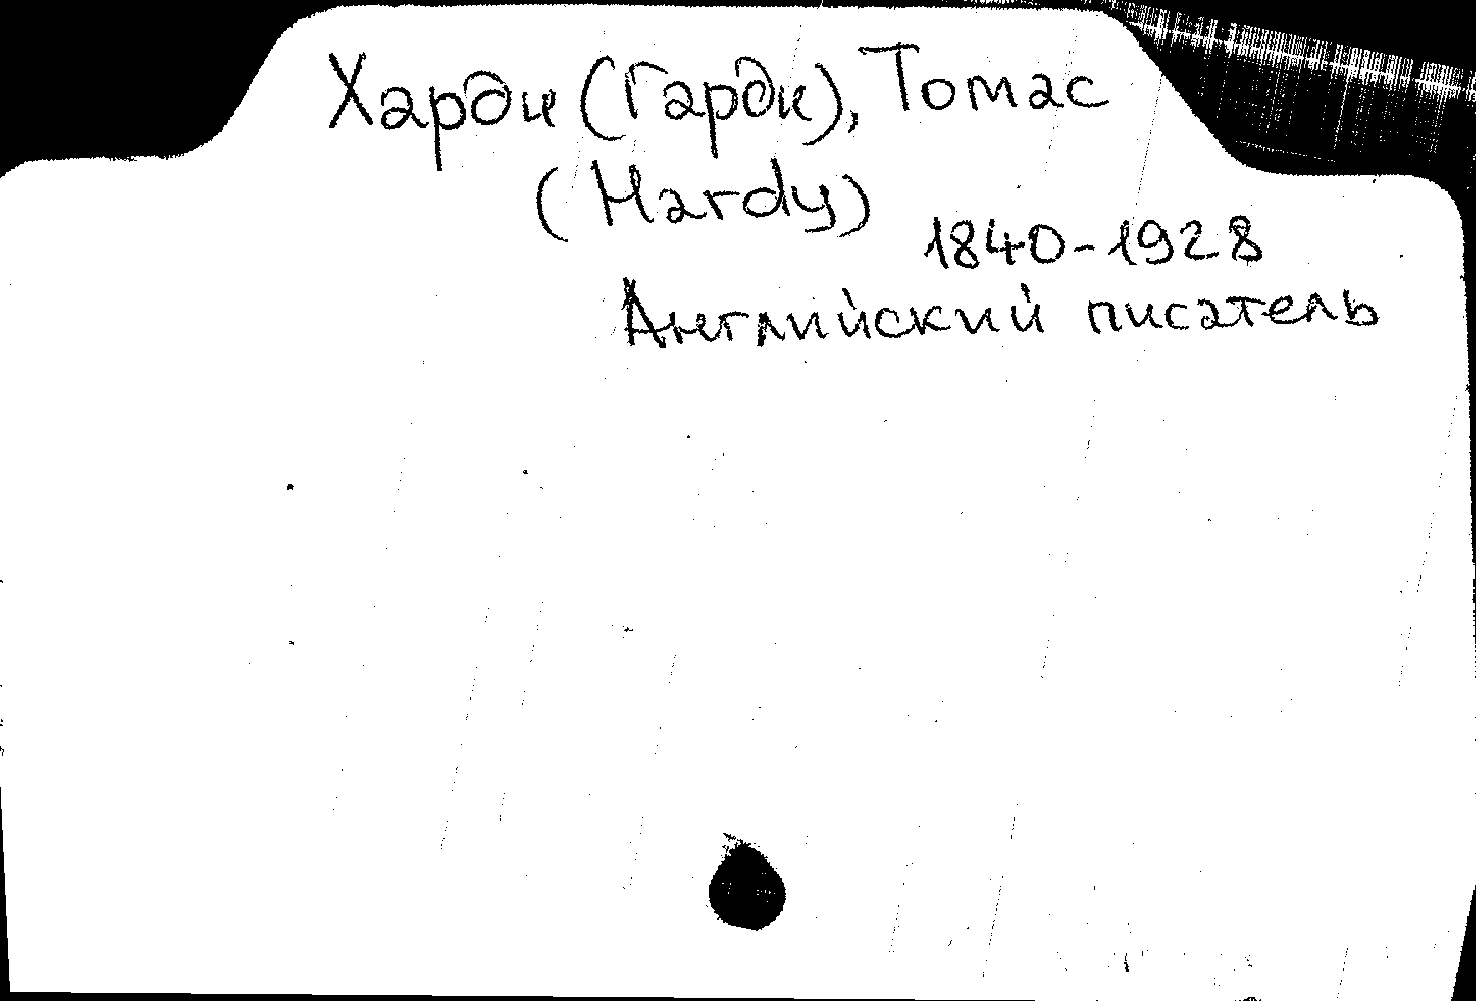 Харди (Гарди), Томас
(Hardy)
1840-1928
Английский писатель